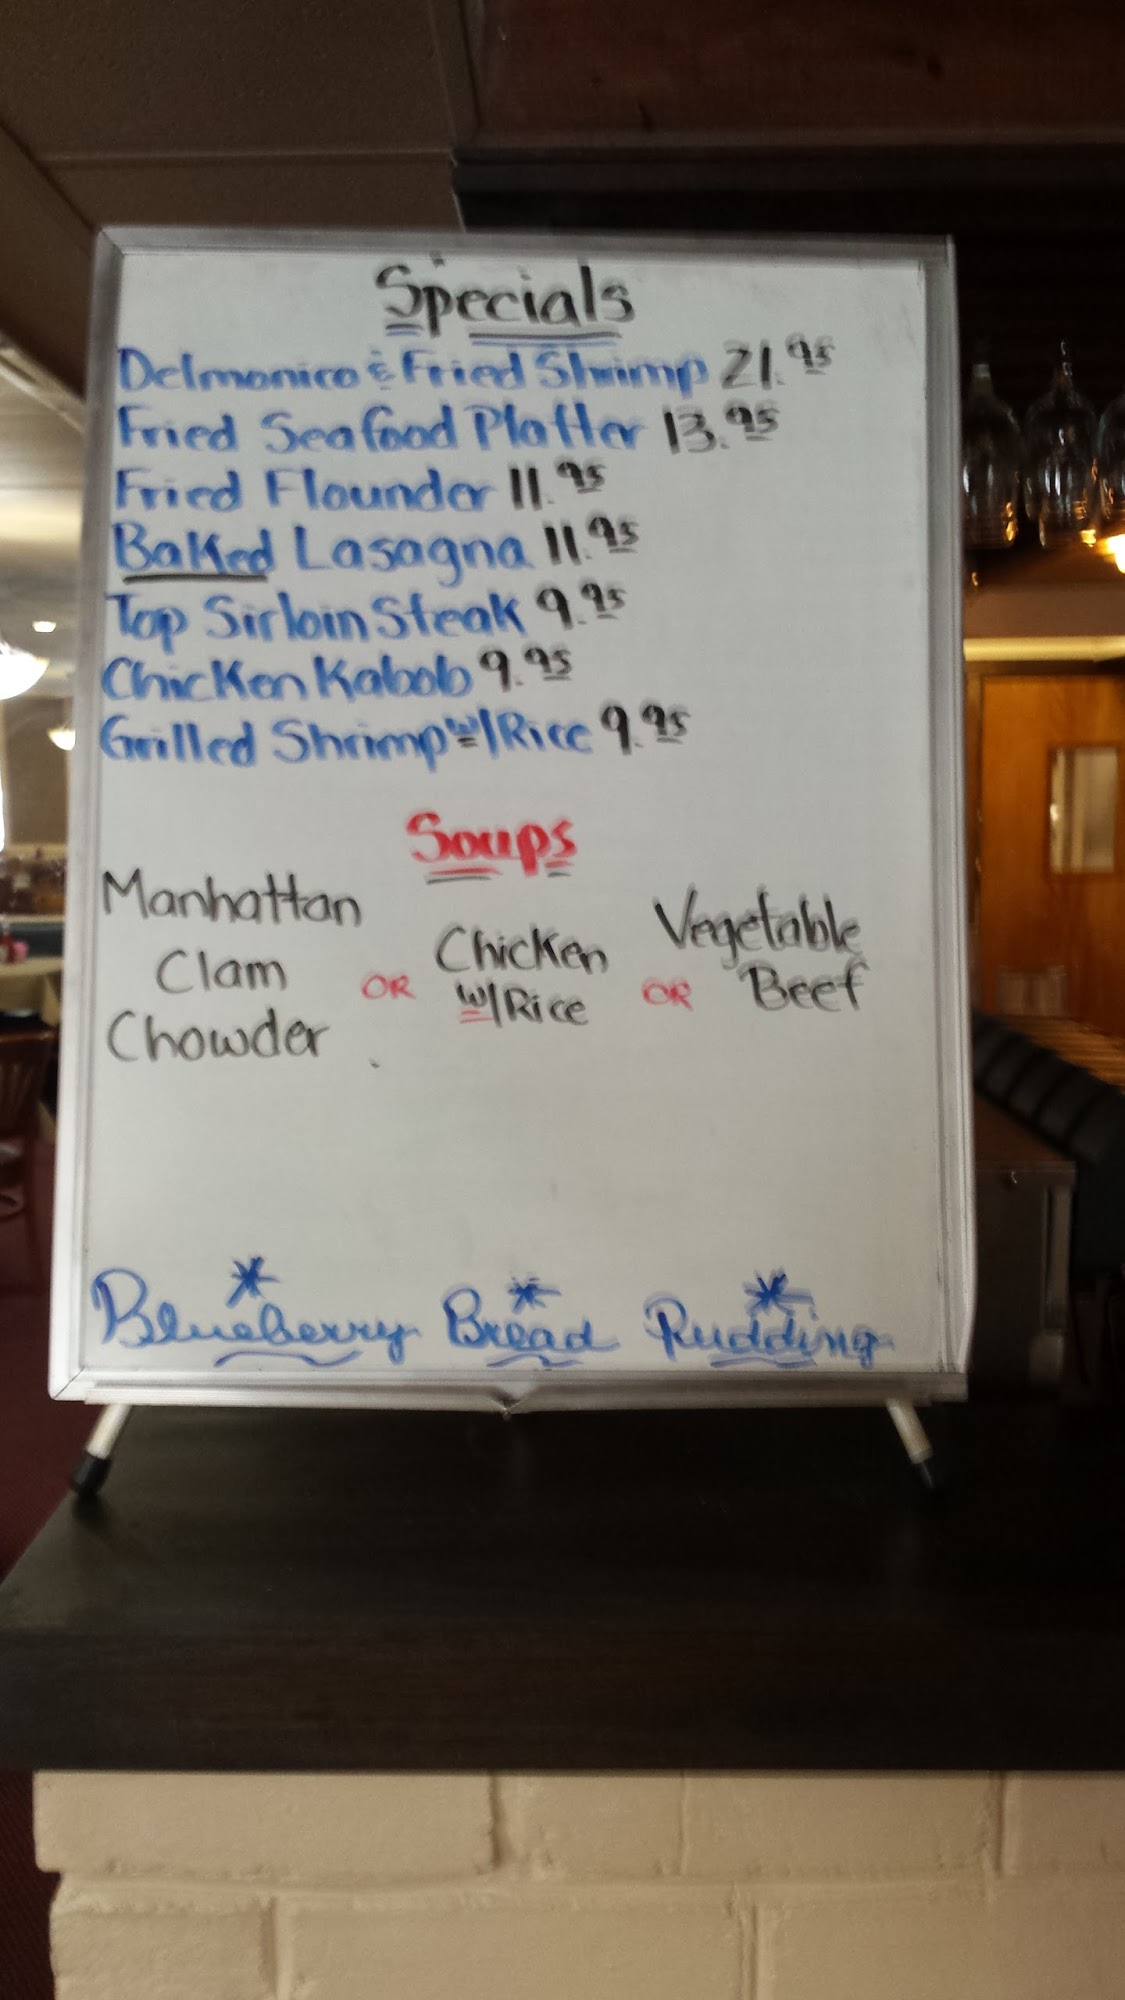 Specials
Delmonico & Fried Shrimp 21.95
Fried Seafood Platter 13.95
Fried Flounder 11.95
Baked Lasagna 11.95
Top Sirloin Steak 9.95
Chicken Kabob 9.95
Grilled Shrimp w/Rice 9.95
Soups
Manhattan
Clam
Chowder
OR
Chicken
w/Rice
OR
Vegetable
Beef
Blueberry Bread Pudding